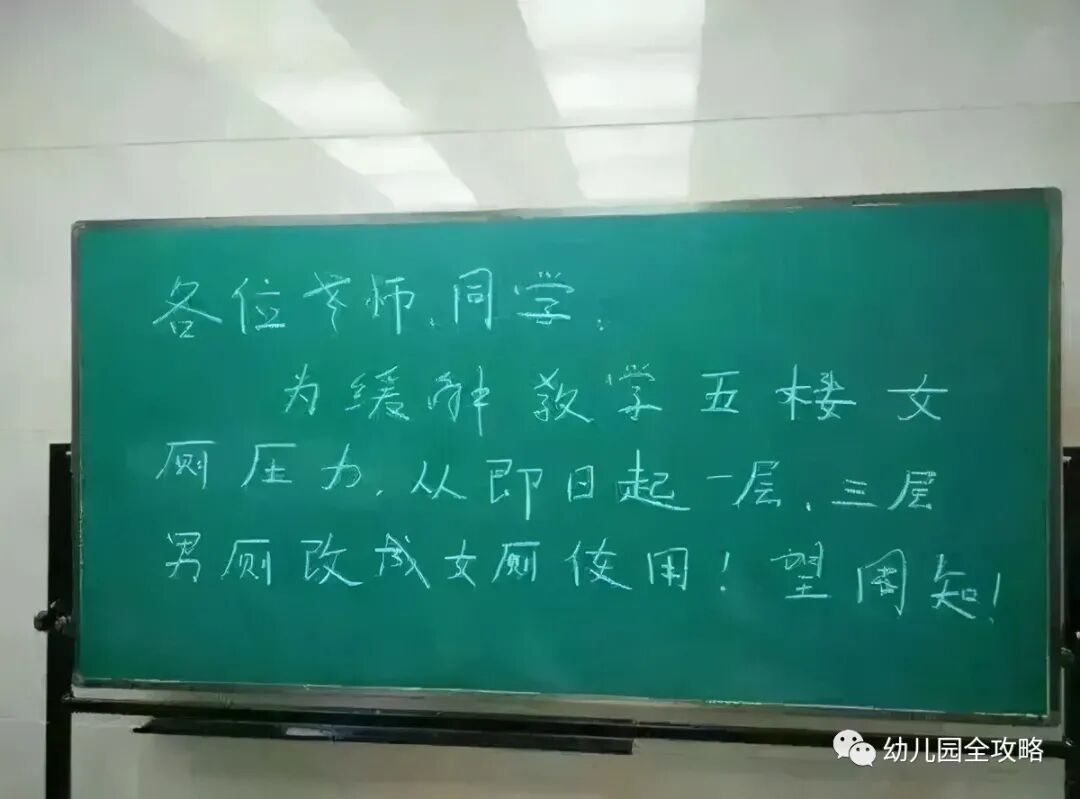 各位老师、同学:
为缓解教学五楼女
厕压力,从即日起一层、三层
男厕改成女厕使用!望周知!
幼儿园全攻略